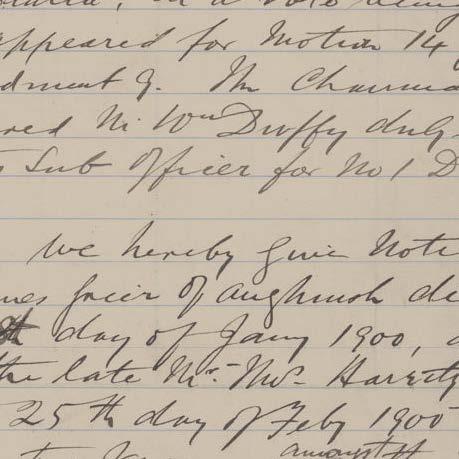 in a vote being
appeared for Motion 14
dment 9. The Chairma
red Mr. Wm Duffy duly
Sub Officer for No 1 D
We hereby give Noti
mes frier of aughrush de
th day of Jany 1900,
the late Mr. Ths.
25th day of Feby 1900
amongst